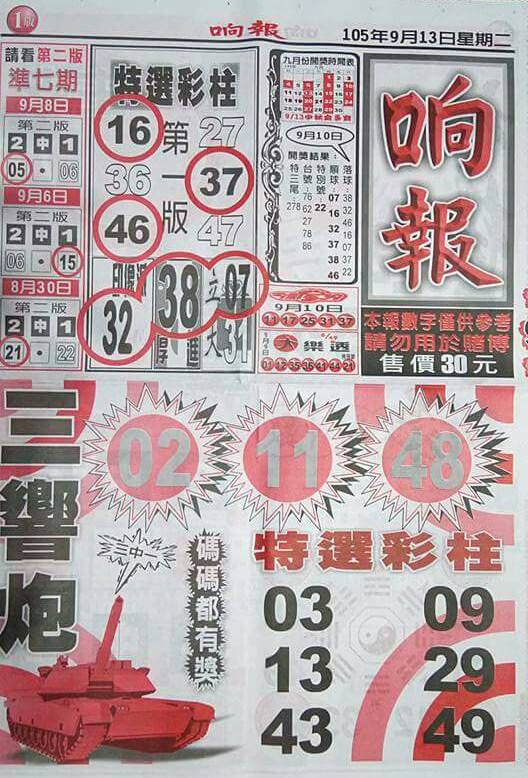 1版
响報
105年9月13日星期二
請看第二版
準七期
9月8日
第二版
2中1
05 · 06
9月6日
第二版
2中1
06 · 15
8月30日
第二版
2中1
21 · 22
特選彩柱
第一版
16 27
36 37
46 47
32 38 07
37
九月份開獎時間表
9/13中秋金多寶
9月10日
開獎結果：
特三尾 台號 特別號 順球 落球
278
76
62
27
78
86
22
07
16
22
32
38
46
38
32
46
16
07
37
22
9月10日
11 17 25 31 37
大樂透
01 12 35 36 41 44 21
响報
本報數字僅供參考
請勿用於賭博
售價30元
三響炮
02 11 48
三中一
碼碼都有獎
特選彩柱
03 09
13 29
43 49